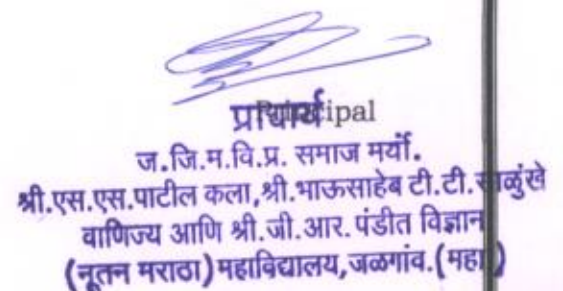 प्राचार्य
Principal
ज.जि.म.वि.प्र. समाज मर्या.
श्री.एस.एस.पाटील कला,श्री.भाऊसाहेब टी.टी.साळुंखे
वाणिज्य आणि श्री.जी.आर.पंडीत विज्ञान
(नूतन मराठा)महाविद्यालय,जळगांव.(महा)